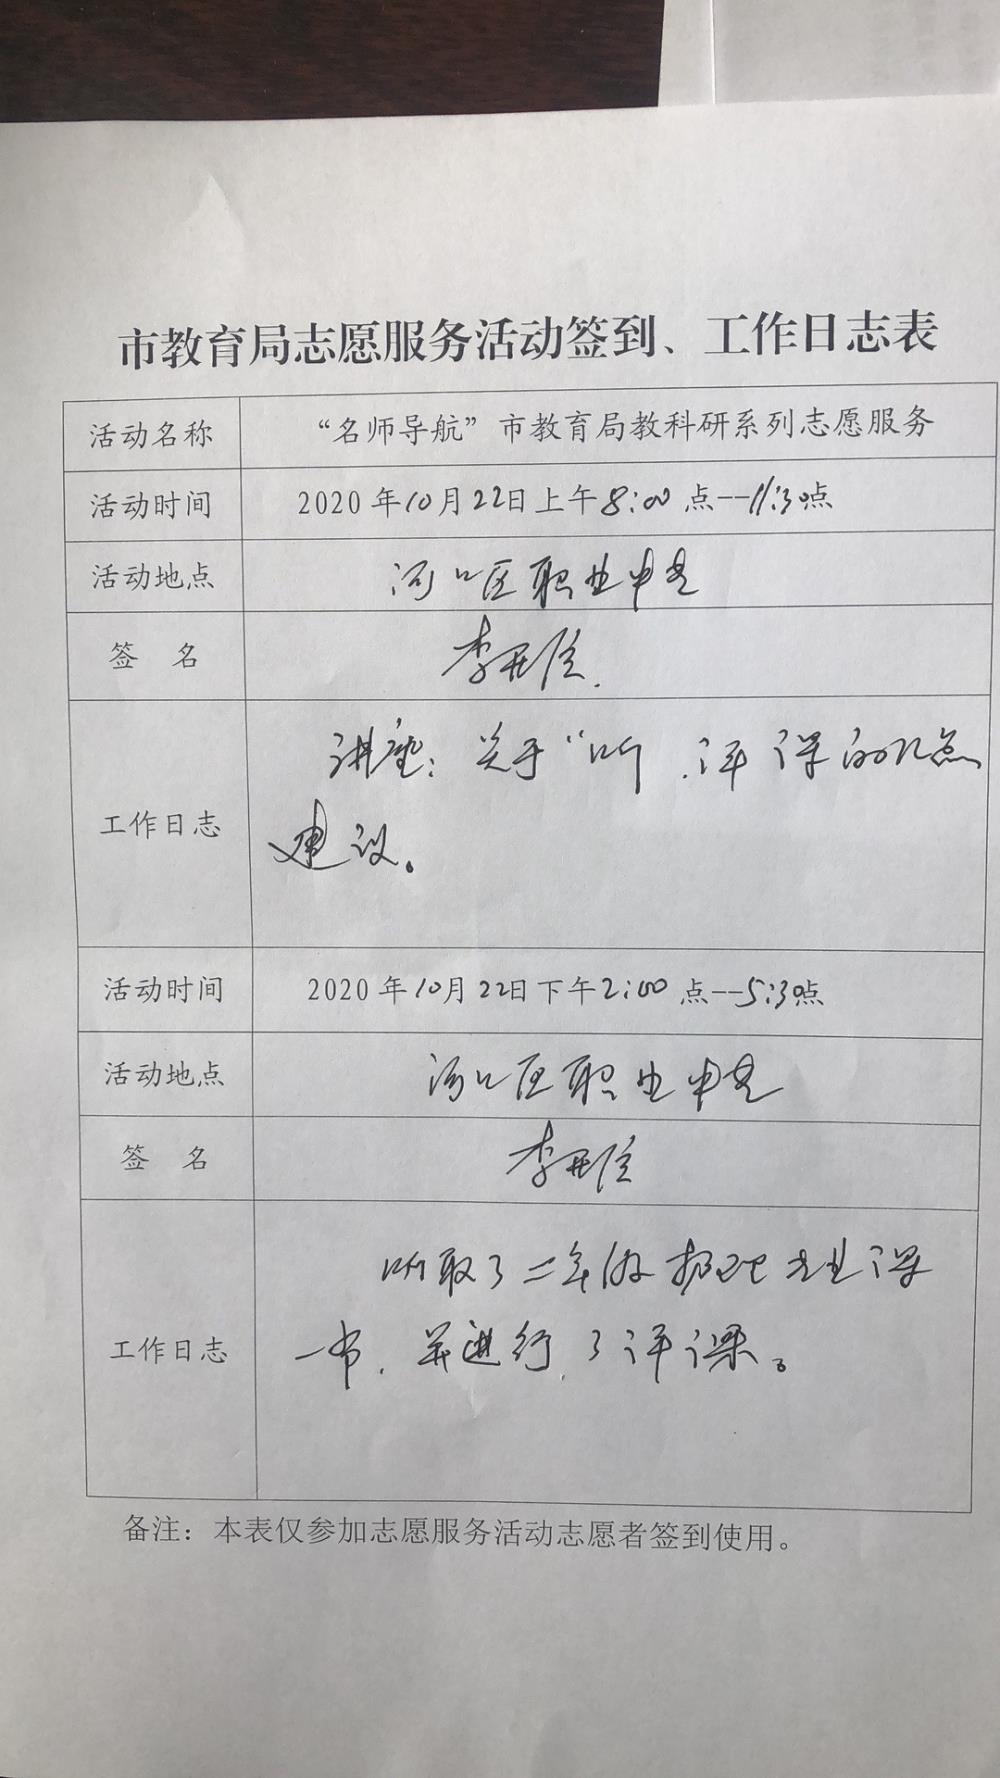 市教育局志愿服务活动签到、工作日志表
活动名称 “名师导航”市教育局教科研系列志愿服务
活动时间 2020年10月22日上午8:00点--11:30点
活动地点 河口区职业中专
签 名 李
工作日志 讲座：关于“听、评课的几点
建议。
活动时间 2020年10月22日下午2:00点--5:30点
活动地点 河口区职业中专
签 名 李
工作日志 听取了二年级 专业课
一节，并进行了评课。
备注：本表仅参加志愿服务活动志愿者签到使用。